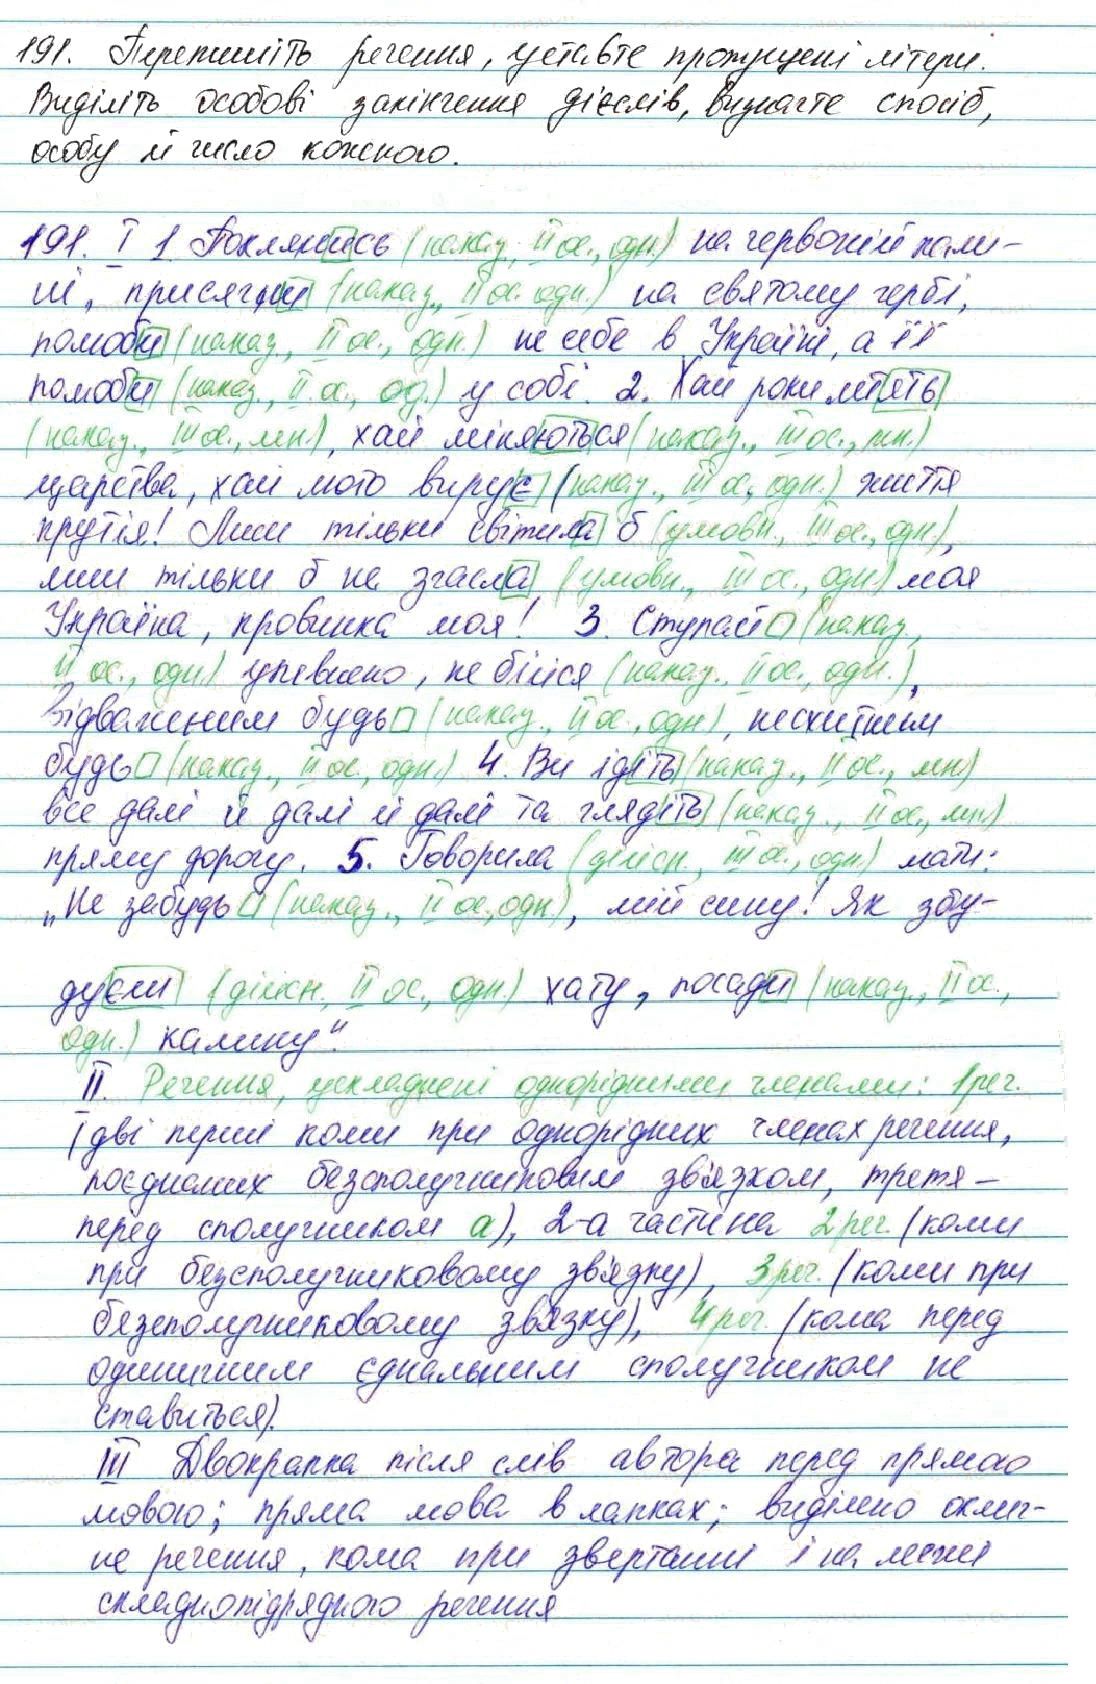 191. Перепишіть речення, уставте пропущені літери.
Виділіть особові закінчення дієслів, визначте спосіб,
особу й число кожного.
191. I 1 Поклянись (наказ., II ос., одн.) на червоній кали-
ні, присягни (наказ., II ос. одн.) на святому гербі,
полюби (наказ., II ос., одн.) не себе в Україні, а її
полюби (наказ., II ос., од.) у собі. 2. Хай роки летять
(наказ., III ос., мн.), хай міняються (наказ., III ос., мн.)
царства, хай мого вирує (наказ., III ос, одн.) життя
прутія! Лиш тільки світила б (умовн., III ос., одн),
лиш тільки б не згасла (умовн., III ос., одн) моя
Україна, кровинка моя! 3. Ступай (наказ.,
II ос., одн) упевнено, не бійся (наказ., II ос., одн.),
відважним будь (наказ., II ос., одн), несхитним
будь (наказ., II ос., одн.) 4. Ви ідіть (наказ., II ос., мн)
все далі й далі й далі та глядіть (наказ., II ос., мн)
пряму дорогу. 5. Говорила (дійсн., III ос., одн) мати:
„Не забудь (наказ., II ос, одн), мій сину! Як збу-
дуєш (дійсн., II ос., одн) хату, посади (наказ., II ос.,
одн.) калину“.
II. Речення, ускладнені однорідними членами: 1 реч.
(дві перші коми при однорідних членах речення,
поєднаних безсполучниковим зв'язком, третя –
перед сполучником а), 2-а частина 2 реч. (коми
при безсполучниковому зв'язку), 3 реч. (коми при
безсполучниковому зв'язку), 4 реч. (кома перед
одиничним єднальним сполучником не
ставиться).
III Двокрапка після слів автора перед прямою
мовою; пряма мова в лапках; виділено оклич-
не речення, кома при звертанні і на межі
складнопідрядного речення